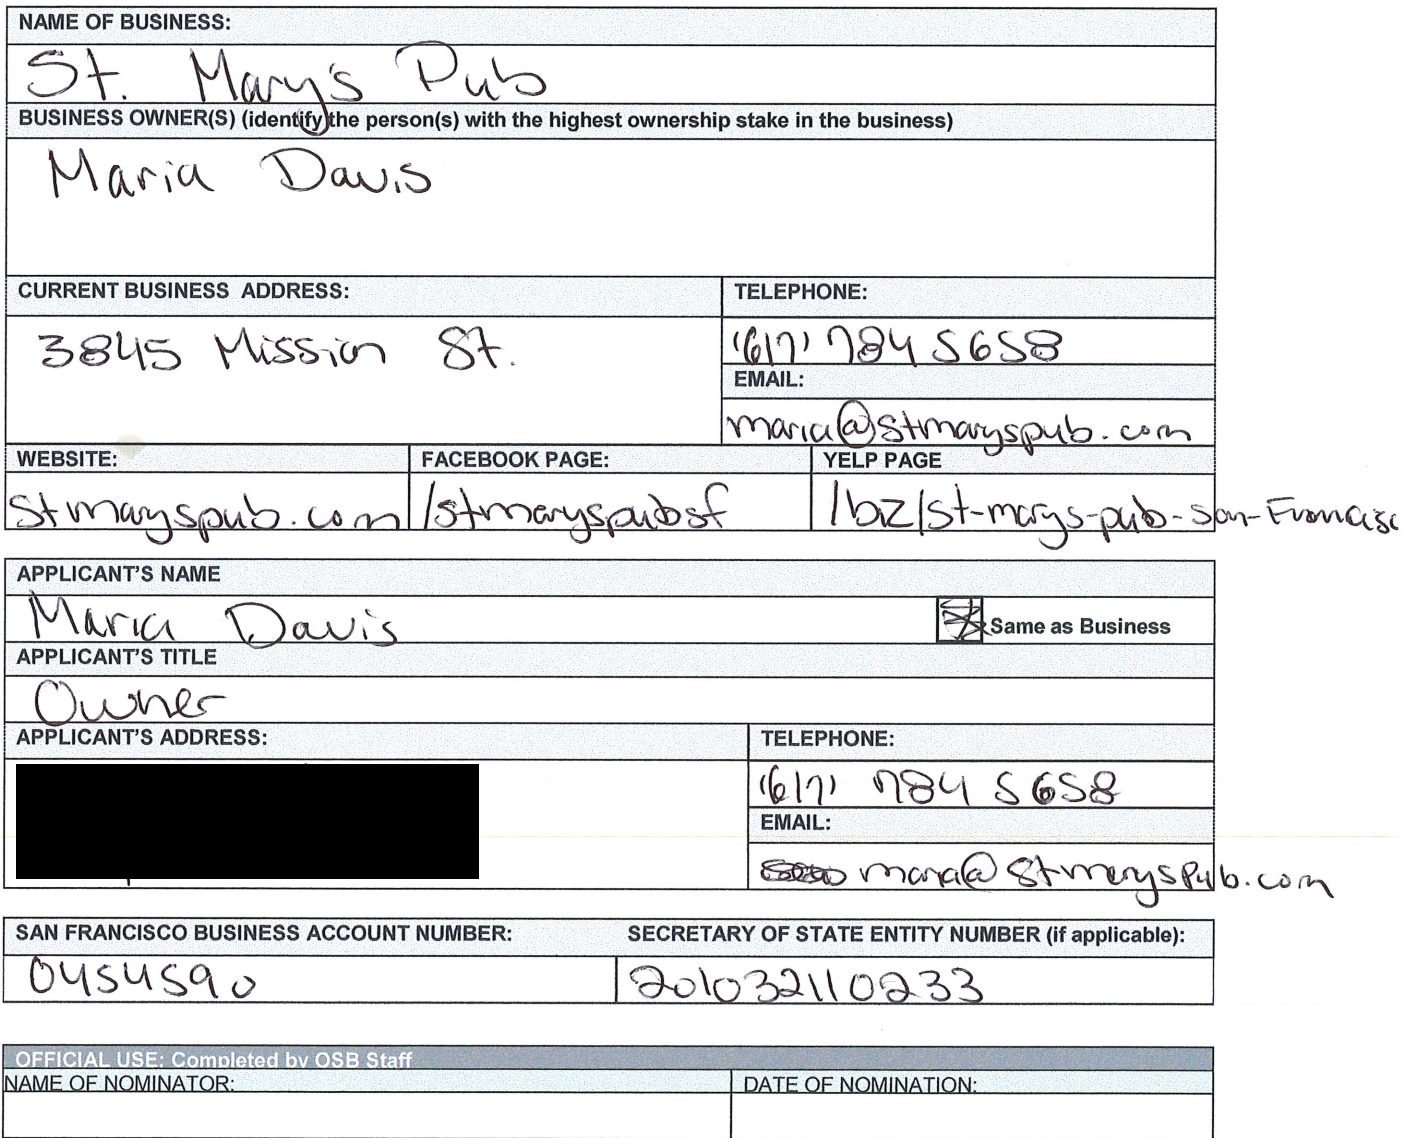 NAME OF BUSINESS:
St. Mary's Pub
BUSINESS OWNER(S) (identify the person(s) with the highest ownership stake in the business)
Maria Davis
CURRENT BUSINESS ADDRESS:
TELEPHONE:
3845 Mission St.
(617) 784 5658
EMAIL:
maria@stmaryspub.com
WEBSITE:
FACEBOOK PAGE:
YELP PAGE
stmaryspub.com
/stmaryspubsf
/biz/st-marys-pub-san-Francisc
APPLICANT'S NAME
Maria Davis
Same as Business
APPLICANT'S TITLE
Owner
APPLICANT'S ADDRESS:
TELEPHONE:
(617) 784 5658
EMAIL:
maria@stmaryspub.com
SAN FRANCISCO BUSINESS ACCOUNT NUMBER:
SECRETARY OF STATE ENTITY NUMBER (if applicable):
0454590
201032110233
OFFICIAL USE: Completed by OSB Staff
NAME OF NOMINATOR:
DATE OF NOMINATION: